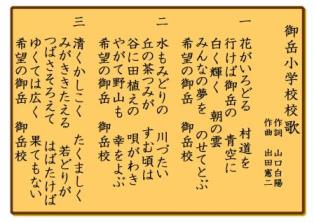 御岳小学校校歌
作詞 山口白陽
作曲 出田憲二
一 花がいろどる 村道を
行けば御岳の 青空に
白く輝く 朝の雲
みんなの夢を のせてとぶ
希望の御岳 御岳校
二 水もみどりの 川づたい
丘の茶つみが すむ頃は
谷に田植えの 唄がわき
やがて野山も 幸をよぶ
希望の御岳 御岳校
三 清くかしこく たくましく
みがききたえる 若どりが
つばさそろえて はばたけば
ゆくては広く 果てもない
希望の御岳 御岳校